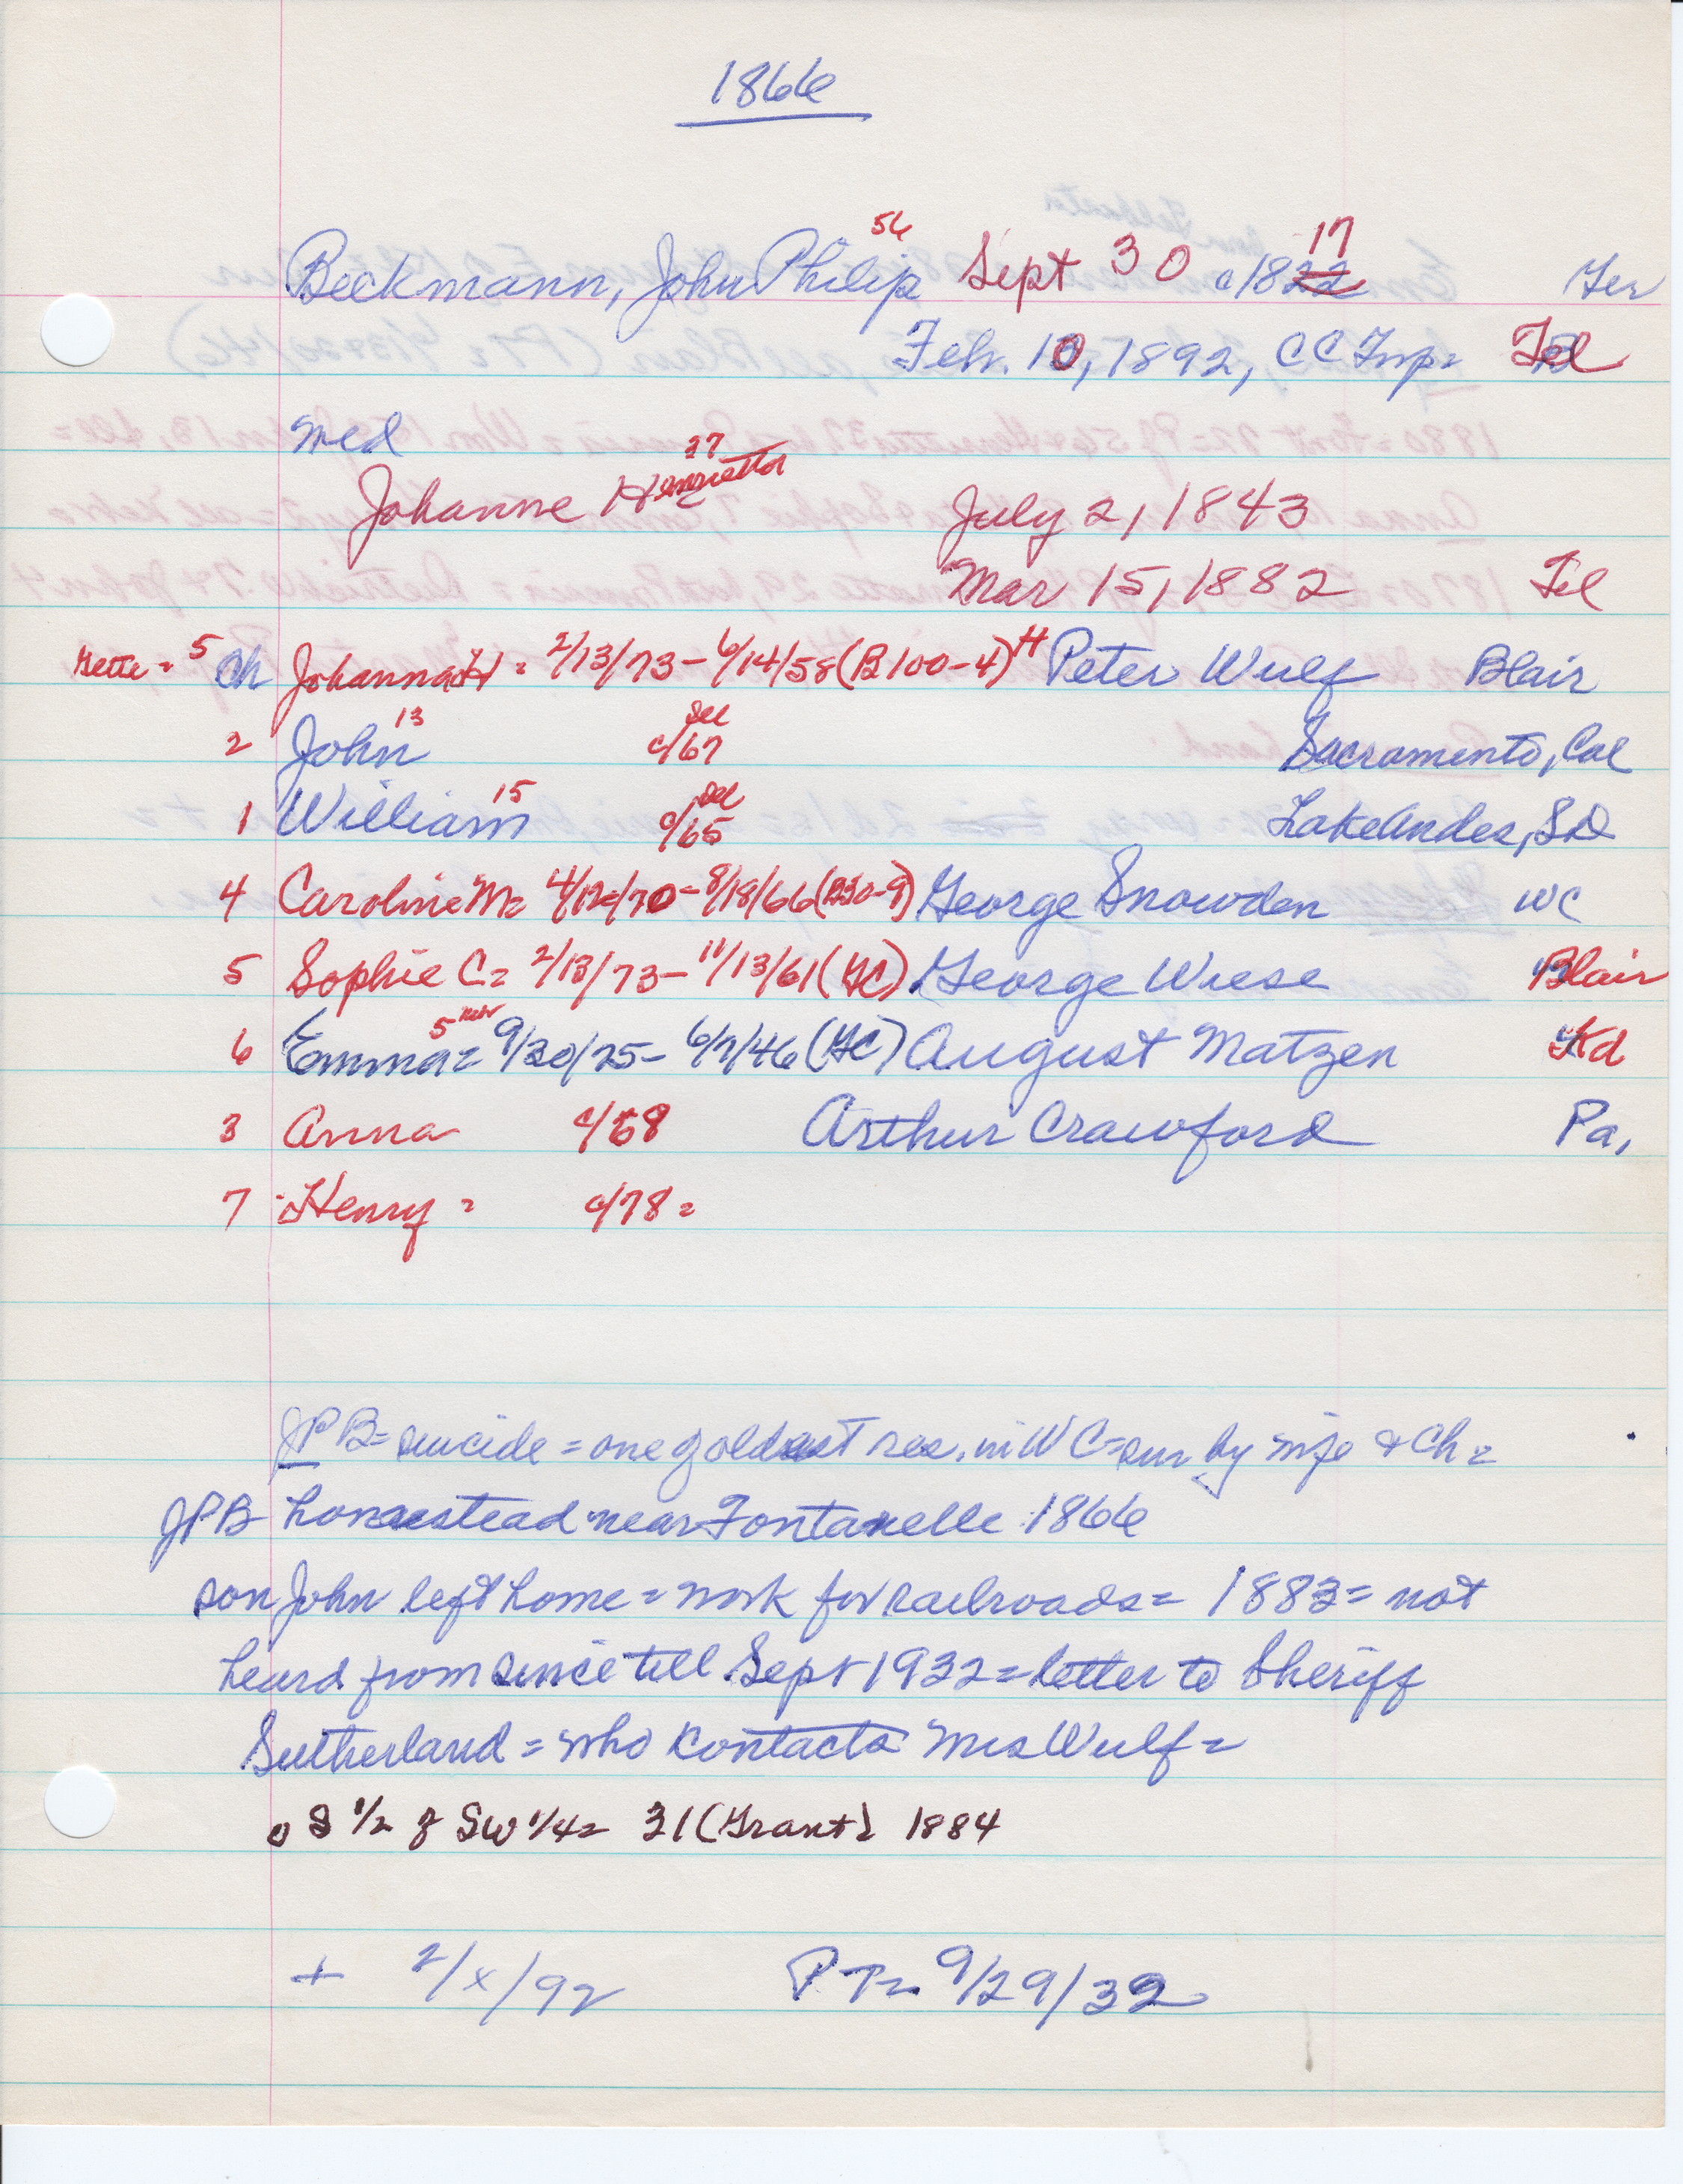 1866
56 17
Beckmann, John Philip Sept 30 c1822 Ger
Feb. 10, 1892, CC Twp= Tel
med 37
Johanne Henrietta July 2, 1843
Mar 15, 1882 Tel
Nette = 5 Ch Johanna H = 2/13/73 – 6/14/58 (B100-4) H Peter Wulf Blair
2 John 13 c/67 Del Sacramento, Cal
1 William 15 c/65 Del Lake Andes, SD
4 Caroline M= 4/12/70 – 8/18/66 (B30-9) George Snowden WC
5 Sophie C= 2/13/73 – 11/13/61 (GC) George Wiese Blair
6 Emma= 5 Nebr 9/30/25 – 6/7/46 (GC) August Matzen Kd
3 Anna c/68 Arthur Crawford Pa,
7 Henry = c/78 =
JPB= suicide = one of oldest res. in WC= sur by wife & Ch =
JPB homestead near Fontanelle 1866
son John left home = work for railroads = 1883 = not
heard from since till Sept 1932 = letter to Sheriff
Sutherland = who contacts Mrs Wulf =
o S 1/2 of SW 1/4 = 31 (Grant) 1884
+ 2/x/92 PT= 9/29/32